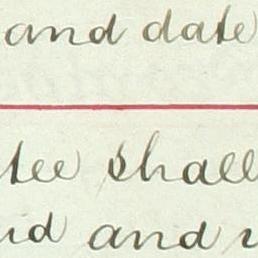 and date
tee shall
id and